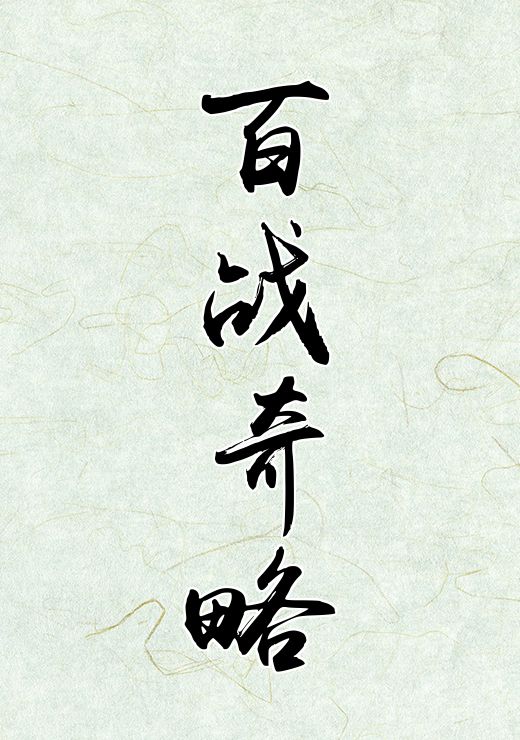 百战奇略